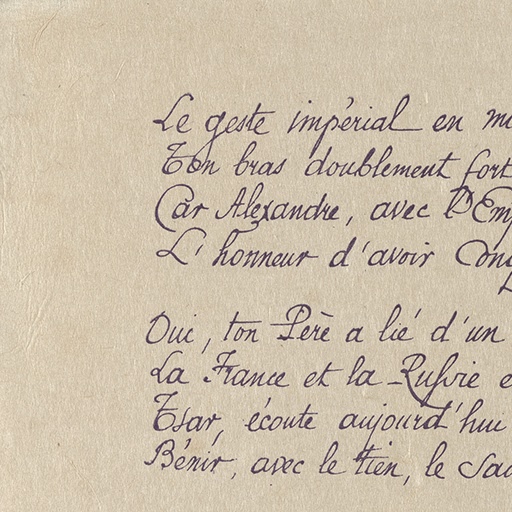 Le geste impérial en
Ton bras doublement fort
Car Alexandre, avec l'Emp
L'honneur d'avoir
Oui, ton Père a lié d'un
La France et la Russie e
Tsar, écoute aujourd'hui
Bénir, avec le tien, le